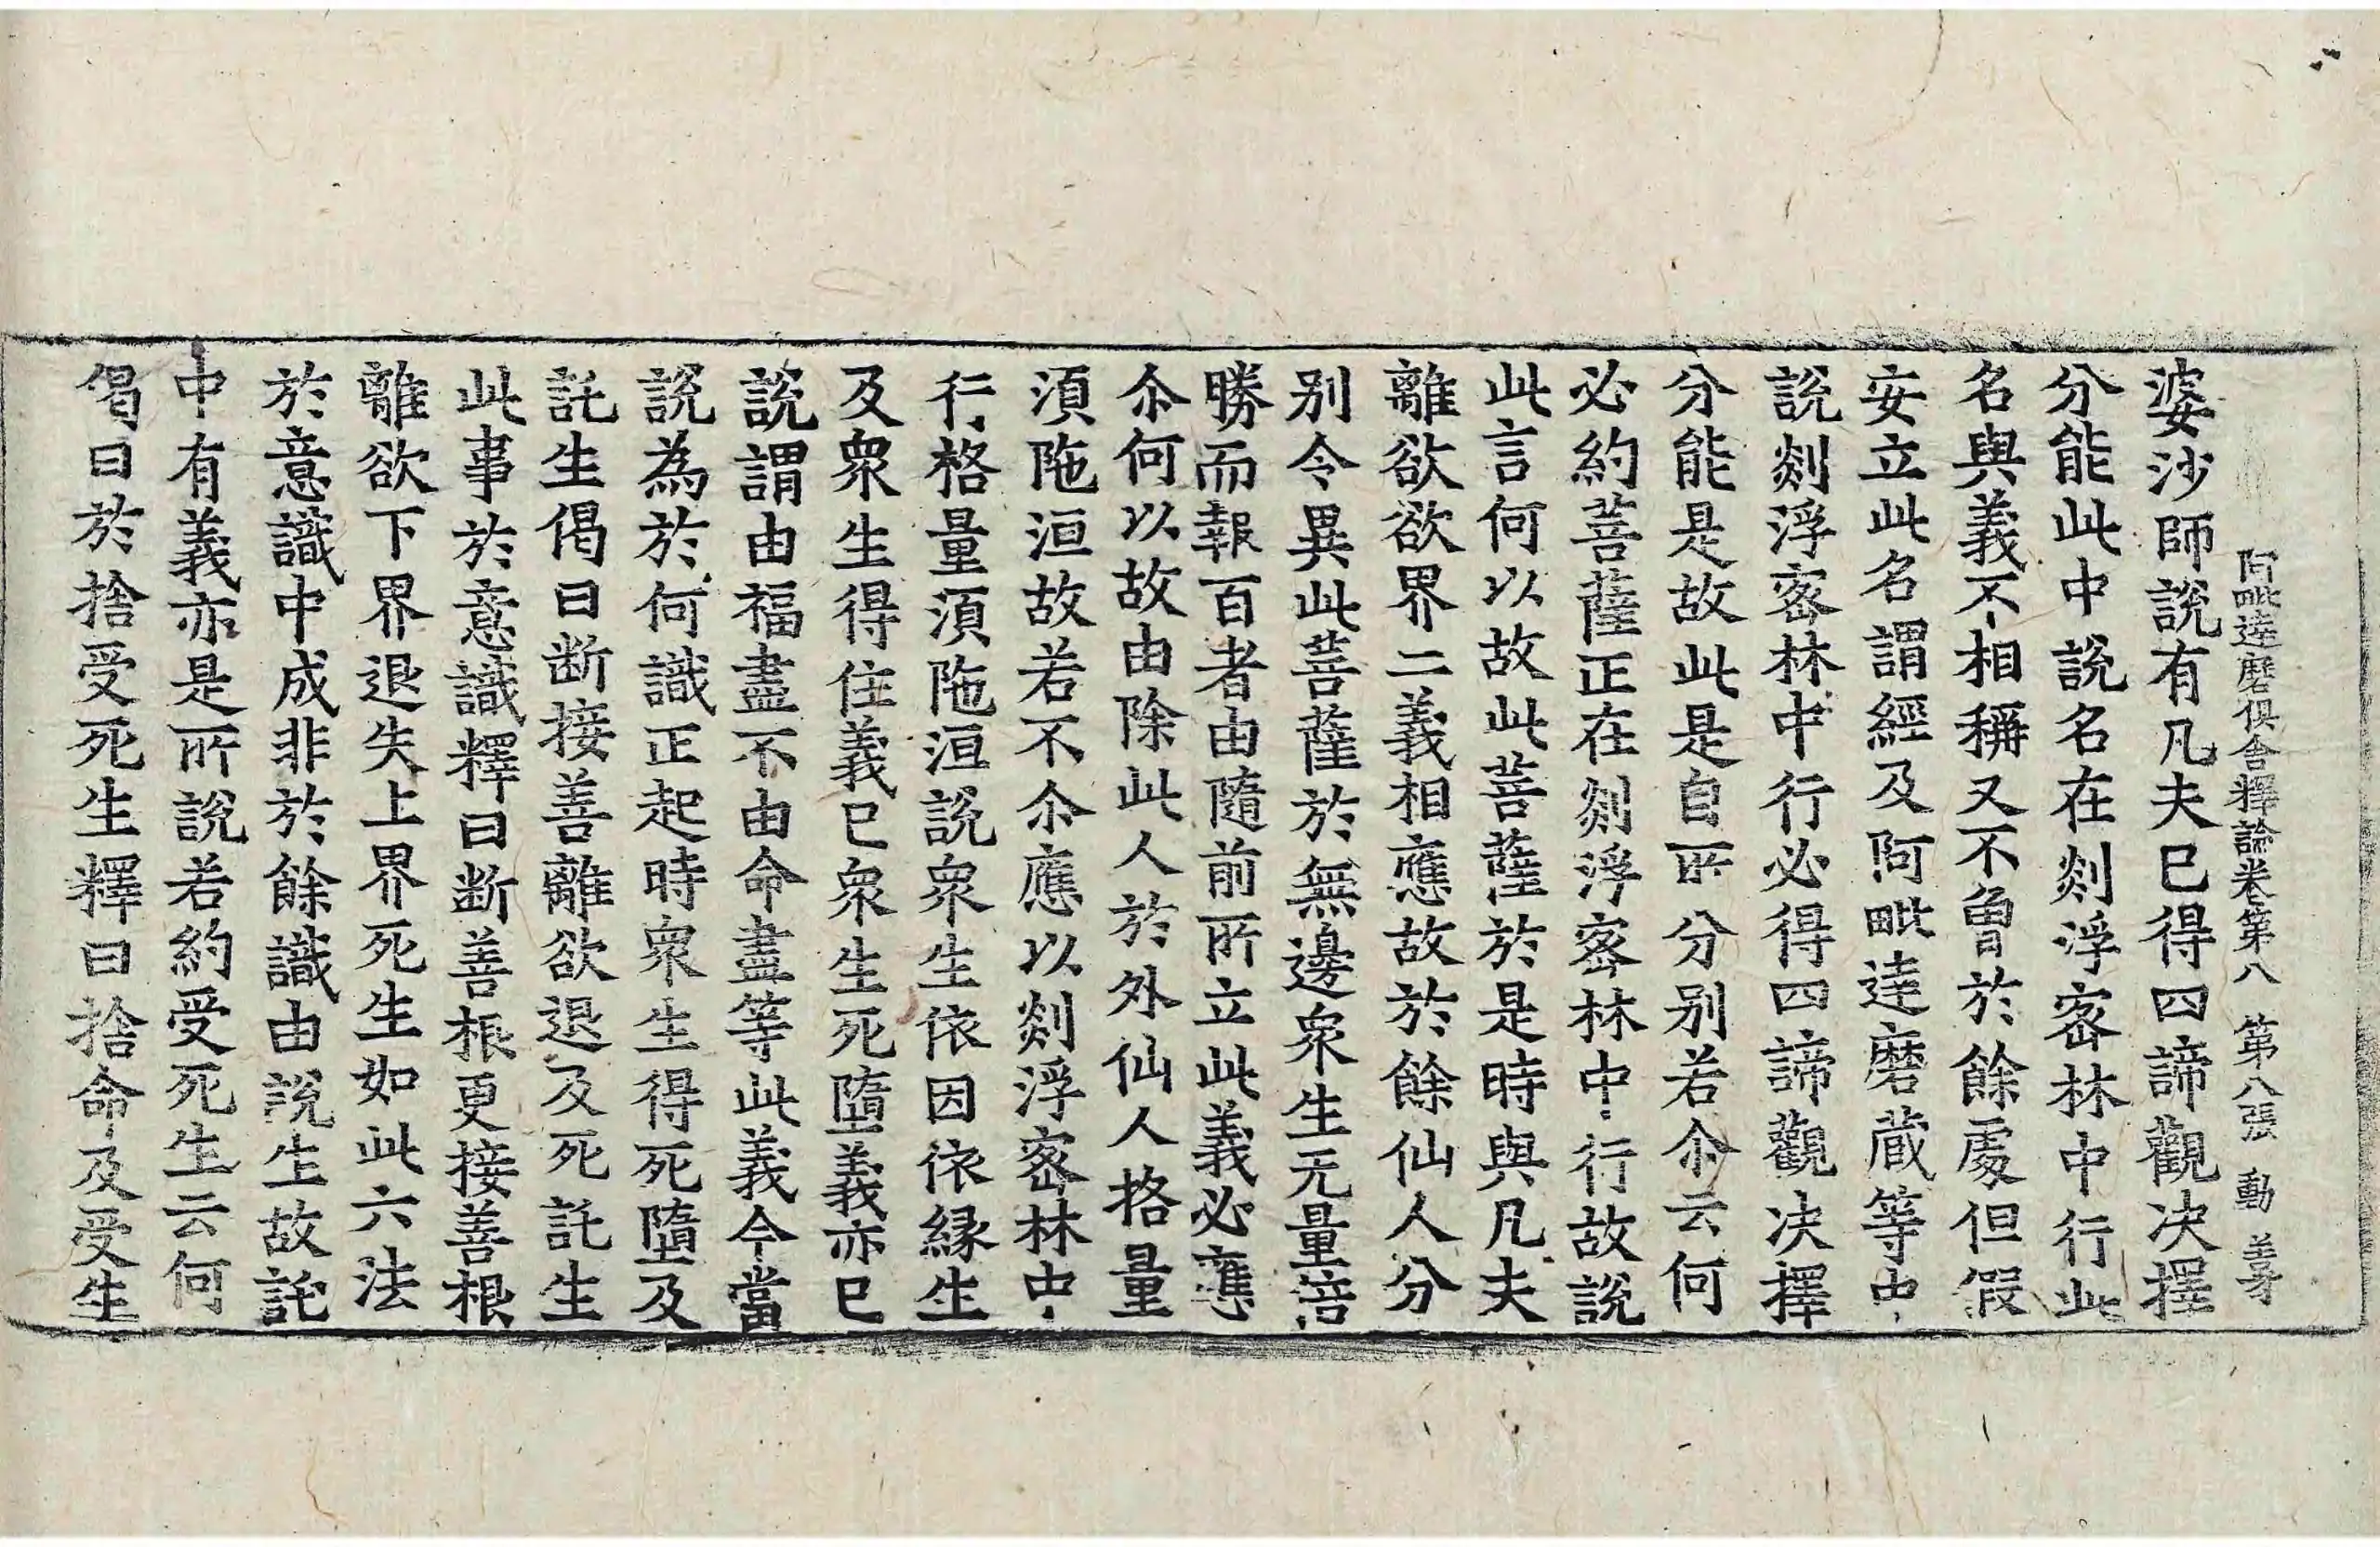 阿毗達磨俱舍釋論卷第八 第八張 動 善才
婆沙師說有凡夫已得四諦觀决擇
分能此中說名在剡浮宻林中行此
名與義不相稱又不曾於餘處但假
安立此名謂經及阿毗達磨蔵等中
說剡浮宻林中行必得四諦觀决擇
分能是故此是自所分別若尒云何
必約菩薩正在剡浮宻林中行故說
此言何以故此菩薩於是時與凡夫
離欲欲界二義相應故於餘仙人分
別令異此菩薩於無邊衆生无量倍
勝而報百者由隨前所立此義必應
尒何以故由除此人於外仙人格量
湏陁洹故若不尒應以剡浮宻林中
行格量湏陁洹說衆生依因依縁生
及衆生得住義已衆生死墮義亦已
說謂由福盡不由命盡等此義今當
說為於何識正起時衆生得死墮及
託生偈曰断接善離欲退及死託生
此事於意識釋曰断善根更接善根
離欲下界退失上界死生如此六法
於意識中成非於餘識由說生故託
中有義亦是所說若約受死生云何
偈曰於捨受死生釋曰捨命及受生